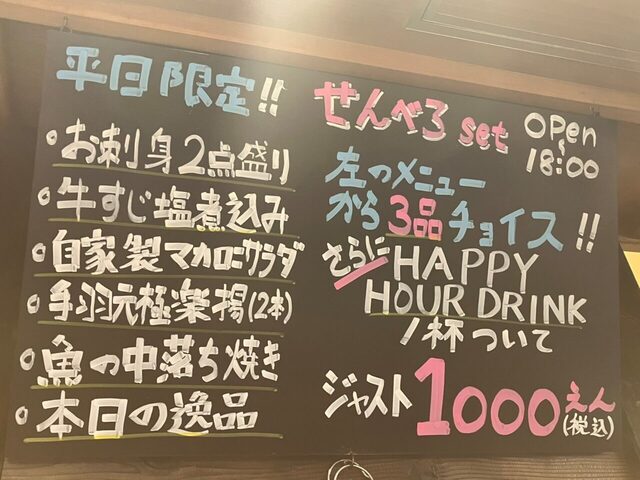 平日限定!!
・お刺身2点盛り
・牛すじ塩煮込み
・自家製マカロニサラダ
・手羽元極楽揚(2本)
・魚の中落ち焼き
・本日の逸品
せんべろ set
OPen
〜
18:00
左のメニュー
から3品チョイス!!
さらに HAPPY
HOUR DRINK
1杯ついて
ジャスト1000えん
(税込)